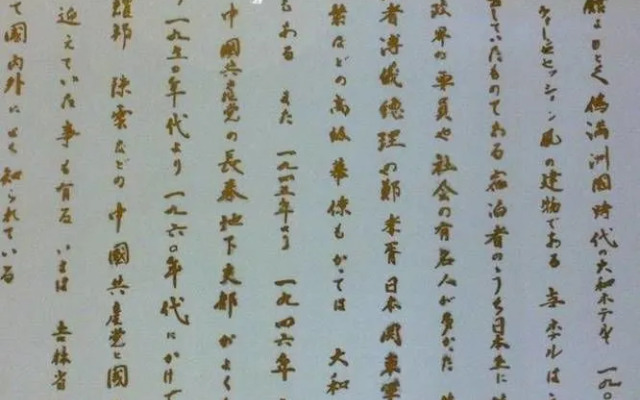 館 もとく 偽満洲国時代の大和ホテルを 一九〇
ウィーン ゼセッション風の建物である 全ホテルは
していたものである 宿泊者のうち日本生に
政界の要員や社会の有名人が多かた
者 溥儀 総理の鄭孝胥 日本関東軍
業などの高级華僚もかっては 大和
もある また 一九四五年より 一九四六年
中國共産党の長春地下支部がよく
一九五〇年代より 一九六〇年代にかけて
羅部 陳雲などの中國共産党と國
迎えていた事も有る いまは 吉林省
て國内外によく知られている